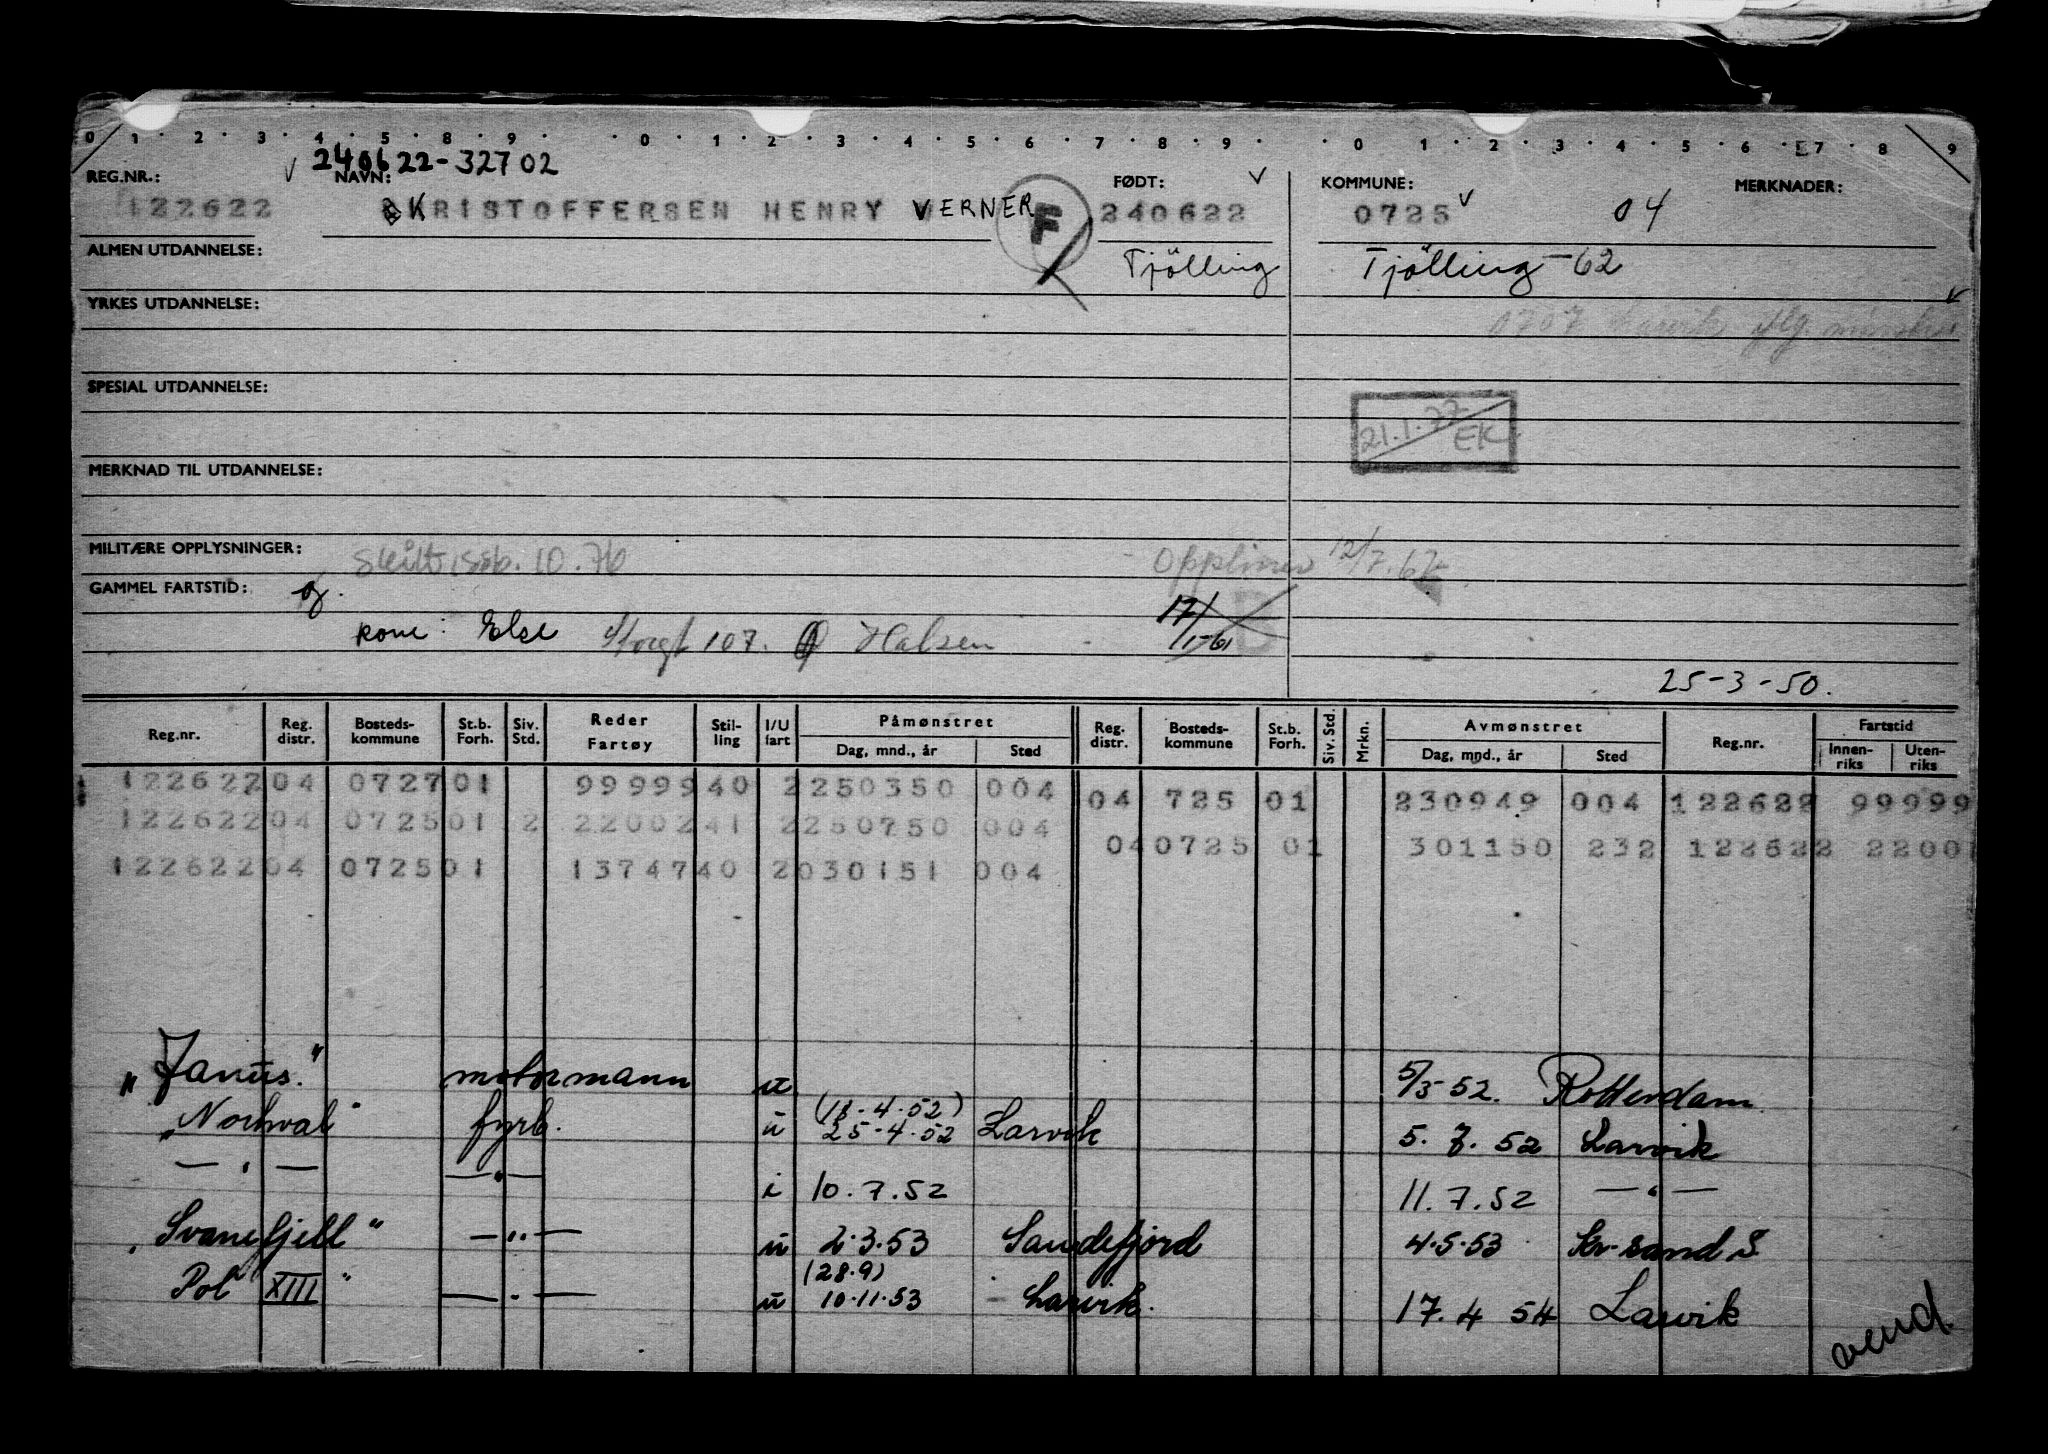 0 1 · 2 · 3 · 4 · 5 · 8 · 9 · 0 · 1 · 2 · 3 · 4 · 5 · 6 · 7 · 8 · 9 · 0 · 1 · 2 · 3 · 4 · 5 · 6 · 7 · 8 · 9
240622-32702
REG.NR.: NAVN: FØDT: KOMMUNE: MERKNADER:
122622 KRISTOFFERSEN HENRY VERNER F 240622 0725 04
ALMEN UTDANNELSE: Tjölling Tjölling -62
YRKES UTDANNELSE:
0707 Larvik
SPESIAL UTDANNELSE:
21.1.77 EK
MERKNAD TIL UTDANNELSE:
MILITÆRE OPPLYSNINGER: 10.76 12/7.67
GAMMEL FARTSTID:
kone: Else 107. Halsen 17/1-61
25-3-50.
Reg.nr. Reg. distr. Bosteds-kommune St.b. Forh. Siv. Std. Reder Fartøy Stil-ling I/U fart Påmønstret Dag, mnd., år Sted Reg. distr. Bosteds-kommune St.b. Forh. Siv. Std. Mrkn. Avmønstret Dag, mnd., år Sted Reg.nr. Fartstid Innen-riks Uten-riks
122622 04 0727 01 99999 40 2 250350 004 04 725 01 230949 004 122622 99999
122622 04 0725 01 2 22002 41 2 250750 004 04 0725 01 301150 232 122622 2200
122622 04 0725 01 13747 40 2 030151 004
„Janus." motormann u 5/3-52. Rotterdam
„Norhval" fyrb. u (18.4.52) 25-4.52 Larvik 5.7.52 Larvik
— " — — " — i 10.7.52 11.7.52 — " —
„Svanefjell" — " — u 2.3.53 Sandefjord 4.5.53 Kr.sand S.
Pol XIII" — " — u (28.9) 10.11.53 Larvik. 17.4 54 Larvik
vend.